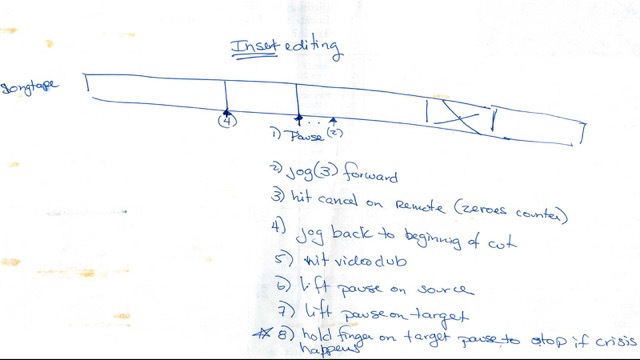 Insert editing
Songtape
(4)
1) Pause (2)
2) jog(3) forward
3) hit cancel on Remote (zeroes counter)
4) jog back to beginning of cut
5) hit video dub
6) lift pause on source
7) lift pause on target
8) hold finger on target pause to stop if crisis
happens